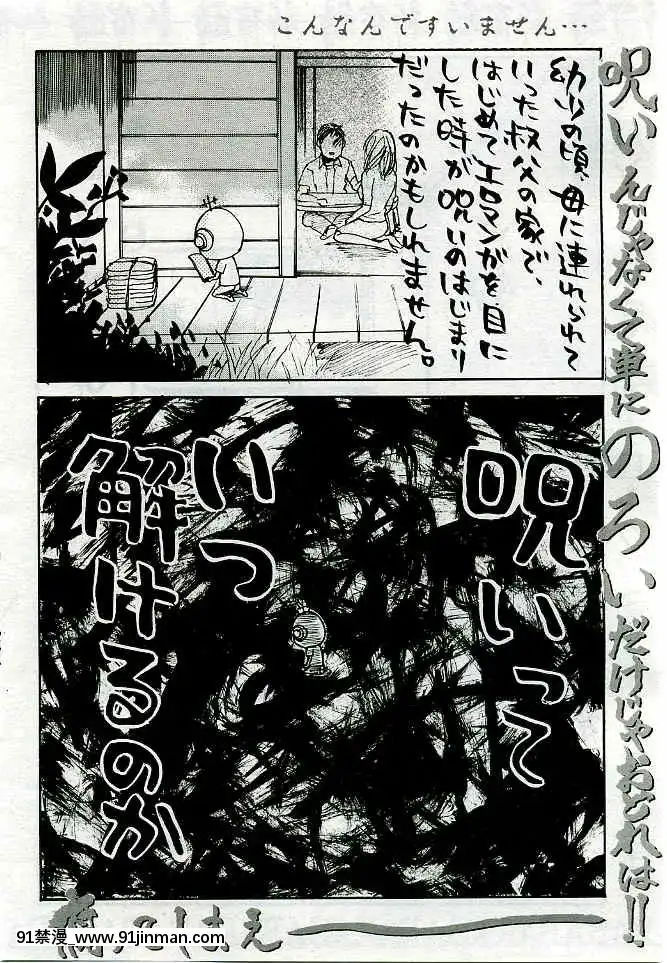 こんなんですいません…
呪いんじゃなくて単にのろいだけじゃおどれは!!
幼少の頃、母に連れられて
いった叔父の家で、
はじめてエロマンガを目に
した時が呪いのはじまり
だったのかもしれません。
呪いって
いつ
解けるのか
91禁漫_www.91jinman.com